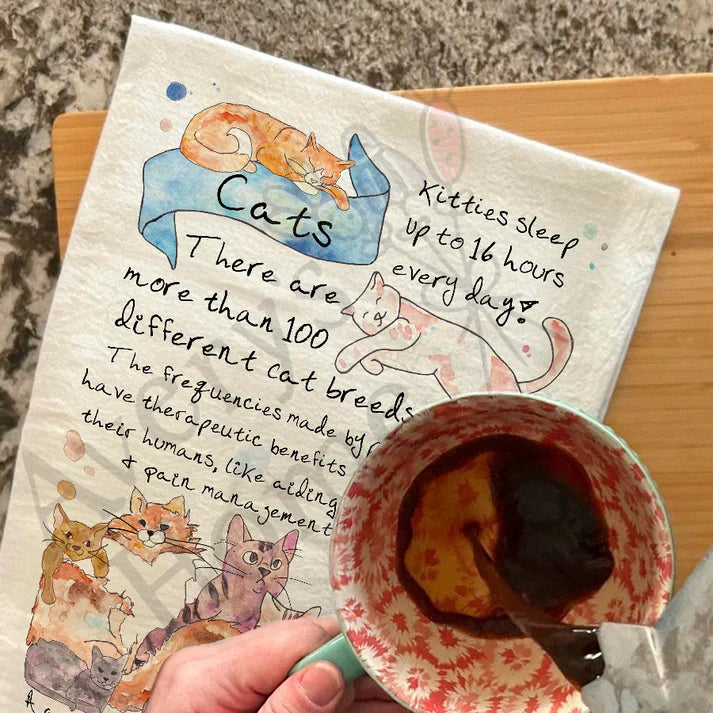 Cats
Kitties sleep
up to 16 hours
every day!
There are
more than 100
different cat breeds
The frequencies made by
have therapeutic benefits
their humans, like aiding
& pain management
A